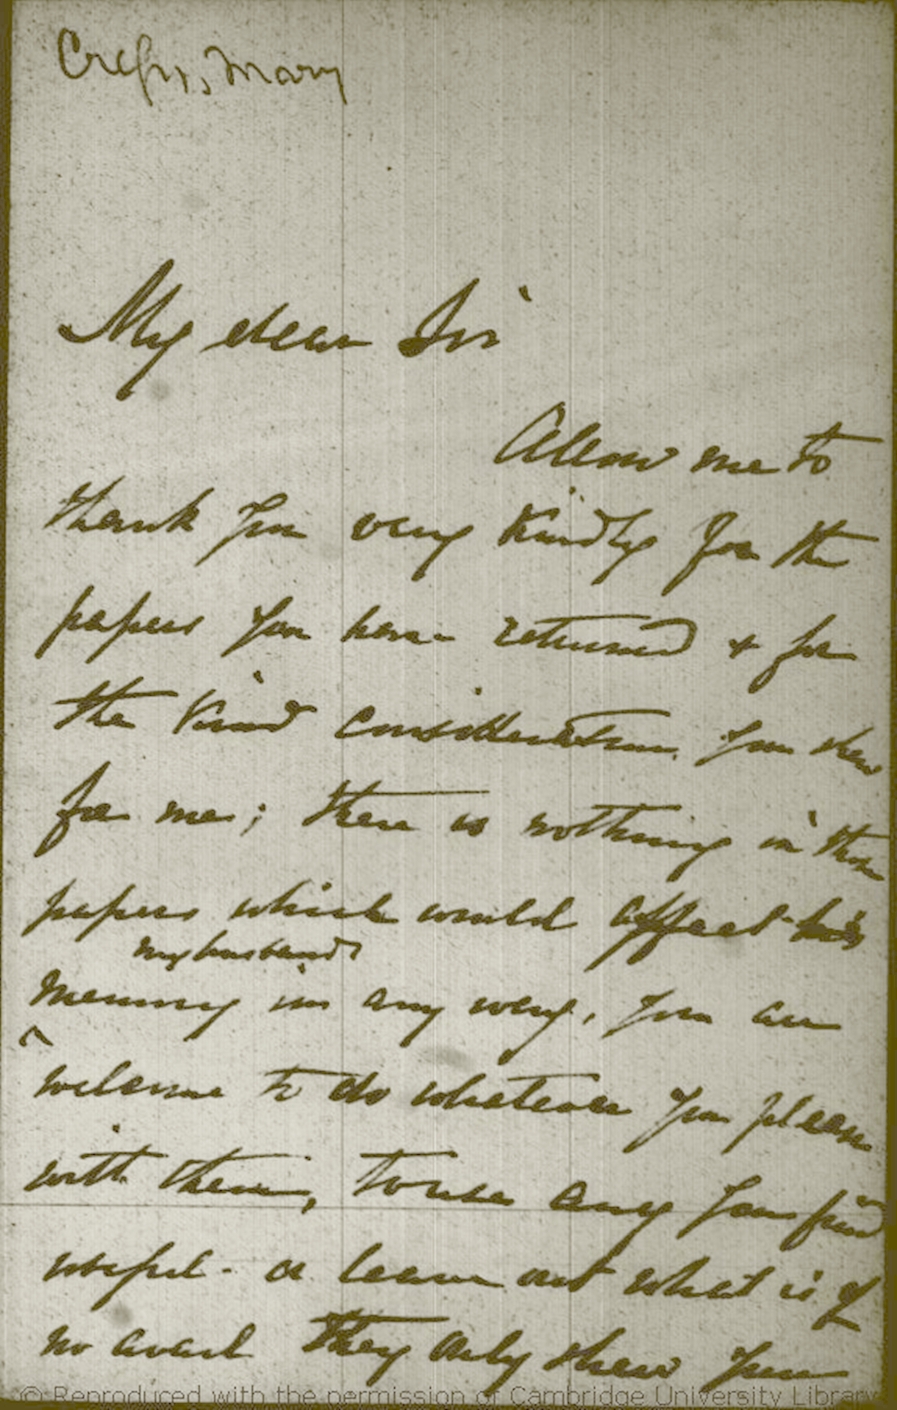 Cressy, Mary
My dear Sir
Allow me to
thank you very kindly for the
papers you have returned & for
the kind consideration you shew
for me; there is nothing in those
papers which would affect his
my husband's
memory in any way, you are
welcome to do whatever you please
with them, to use any you find
useful - or leave out what is of
no avail They only shew you
© Reproduced with the permission of Cambridge University Library